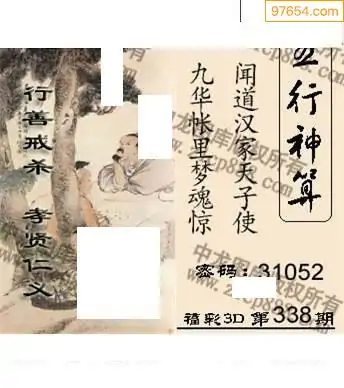 97654.com
五行神算
闻道汉家天子使
九华帐里梦魂惊
行善戒杀 孝贤仁义
密码：31052
福彩3D 第338期